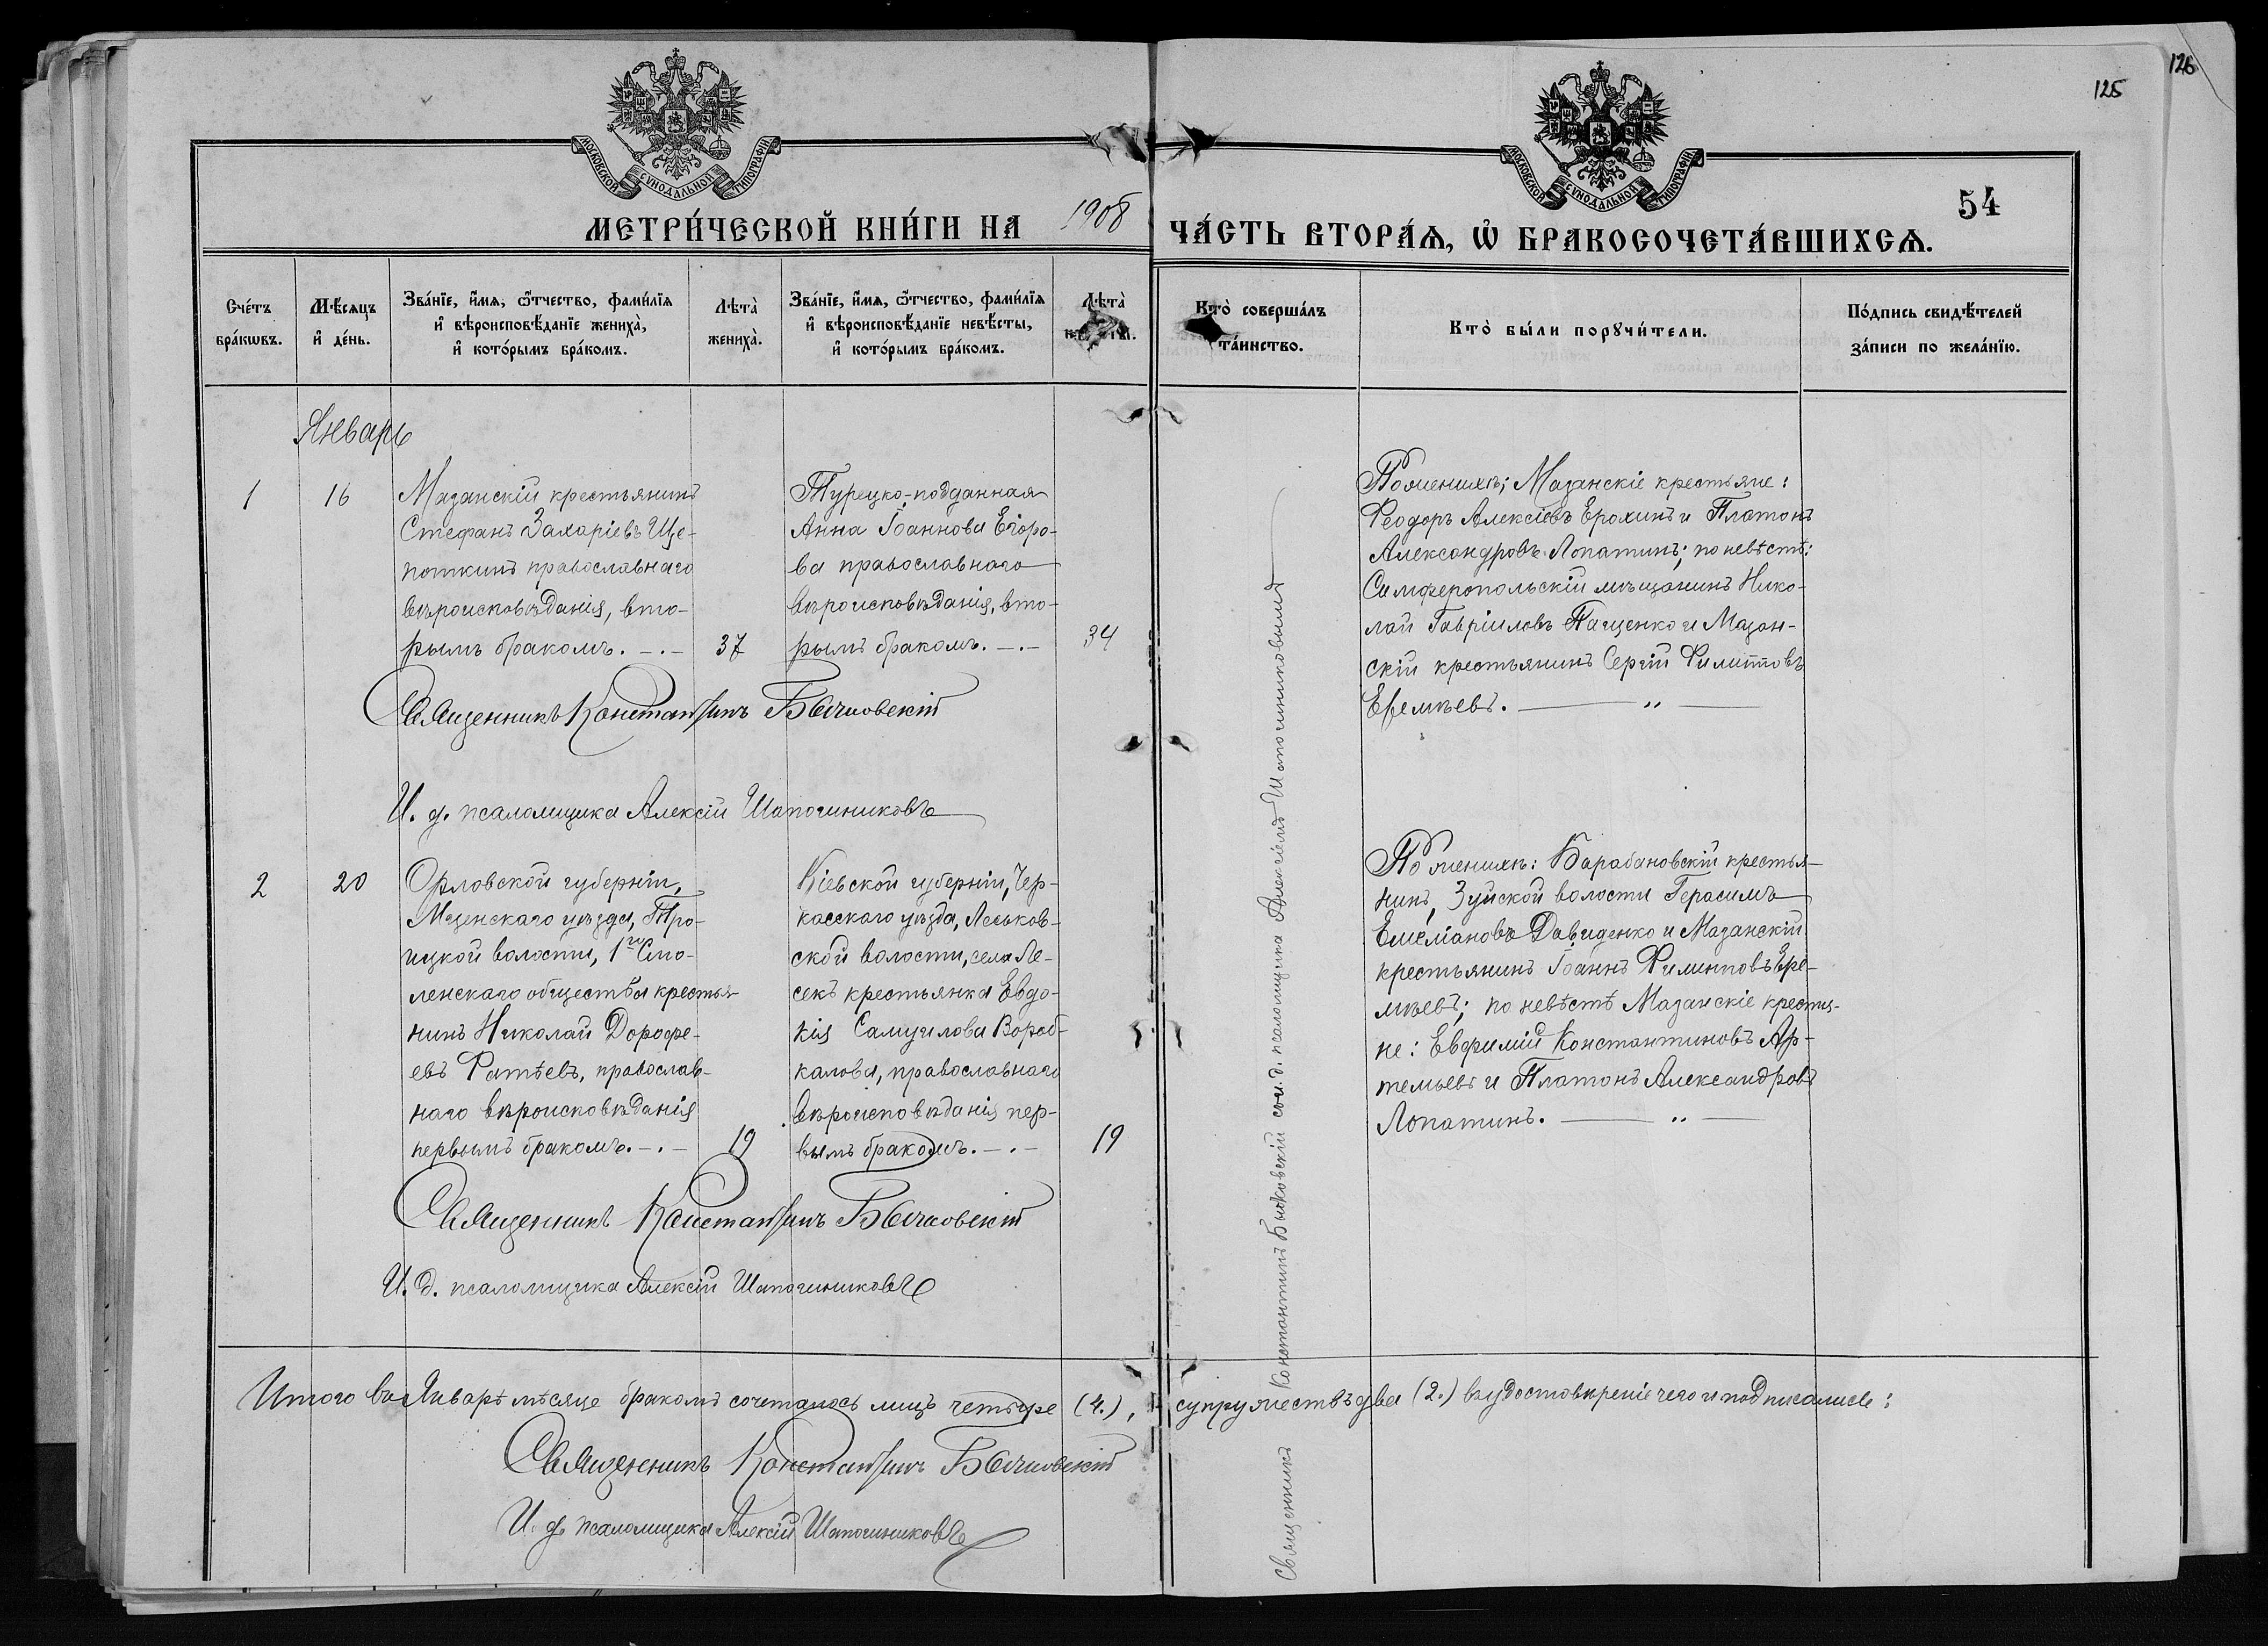 126
125
МОСКОВСКОЙ СѴНОДАЛЬНОЙ ТИПОГРАФІИ
МОСКОВСКОЙ СѴНОДАЛЬНОЙ ТИПОГРАФІИ
54
МЕТРИ́ЧЕСКОЙ КНИ́ГИ НА 1908
ЧА́СТЬ ВТОРА́Ѧ, Ѽ БРАКОСОЧЕТА́ВШИХСѦ.
Сче́тъ
бра́кѡвъ.
Мѣ́сяцъ
и҆ де́нь.
Зва́нїе, и҆́мѧ, ѻ҆́тчество, фами́лїѧ
и҆ вѣроисповѣ́данїе жениха̀,
и҆ кото́рымъ бра́комъ.
Лѣта̀
жениха̀.
Зва́нїе, и҆́мѧ, ѻ҆́тчество, фами́лїѧ
и҆ вѣроисповѣ́данїе невѣ́сты,
и҆ кото́рымъ бра́комъ.
Лѣта̀
Кто̀ соверша́лъ
та́инство.
Кто̀ бы́ли порꙋчи́тели.
По́дпись свидѣ́телей
за́писи по жела́нїю.
Январь
1
16
Мазанскій крестьянинъ
Стефанъ Захаріевъ Ще-
поткинъ православнаго
вѣроисповѣданія, вто-
рымъ бракомъ. -.-
37
Турецко-подданная
Анна Іоаннова Егоро-
ва православнаго
вѣроисповѣданія, вто-
рымъ бракомъ. -.-
34
Священникъ Константинъ Бычковскій
И. д. псаломщика Алексій Шапочниковъ
По женихѣ; Мазанскіе крестьяне:
Ѳеодоръ Алексіевъ Ерохинъ и Платонъ
Александровъ Лопатинъ; по невѣстѣ:
Симферопольскій мѣщанинъ Нико-
лай Гавріиловъ Пащенко и Мазан-
скій крестьянинъ Сергій Филипповъ
Еремѣевъ. — " —
2
20
Орловской губерніи,
Мценскаго уѣзда, Тро-
ицкой волости, 1го Смо-
ленскаго общества крестья-
нинъ Николай Дорофе-
евъ Фатѣевъ, православ-
наго вѣроисповѣданія
первымъ бракомъ. -.-
19
Кіевской губерніи, Чер-
касскаго уѣзда, Леськов-
ской волости, села Ле-
секъ крестьянка Евдо-
кія Самуилова Вороб-
калова, православнаго
вѣроисповѣданія пер-
вымъ бракомъ. -.-
19
Священникъ Константинъ Бычковскій
И. д. псаломщика Алексій Шапочниковъ
По женихѣ: Барабановскій крестья-
нинъ, Зуйской волости Герасимъ
Давиденко и Мазанскій
крестьянинъ Іоаннъ Филипповъ Ере-
мѣевъ; по невѣстѣ Мазанскіе крестья-
не: Евфимій Константиновъ Ар-
темьевъ и Платонъ Александровъ
Лопатинъ. — " —
Священникъ Константинъ Бычковскій съ и. д. псаломщика Алексіемъ Шапочниковымъ
Итого въ Январѣ мѣсяце бракомъ сочеталось лицъ четыре (4.), супружествъ два (2.) въ удостовѣреніе чего и подписались:
Священникъ Константинъ Бычковскій
И. д. псаломщика Алексій Шапочниковъ